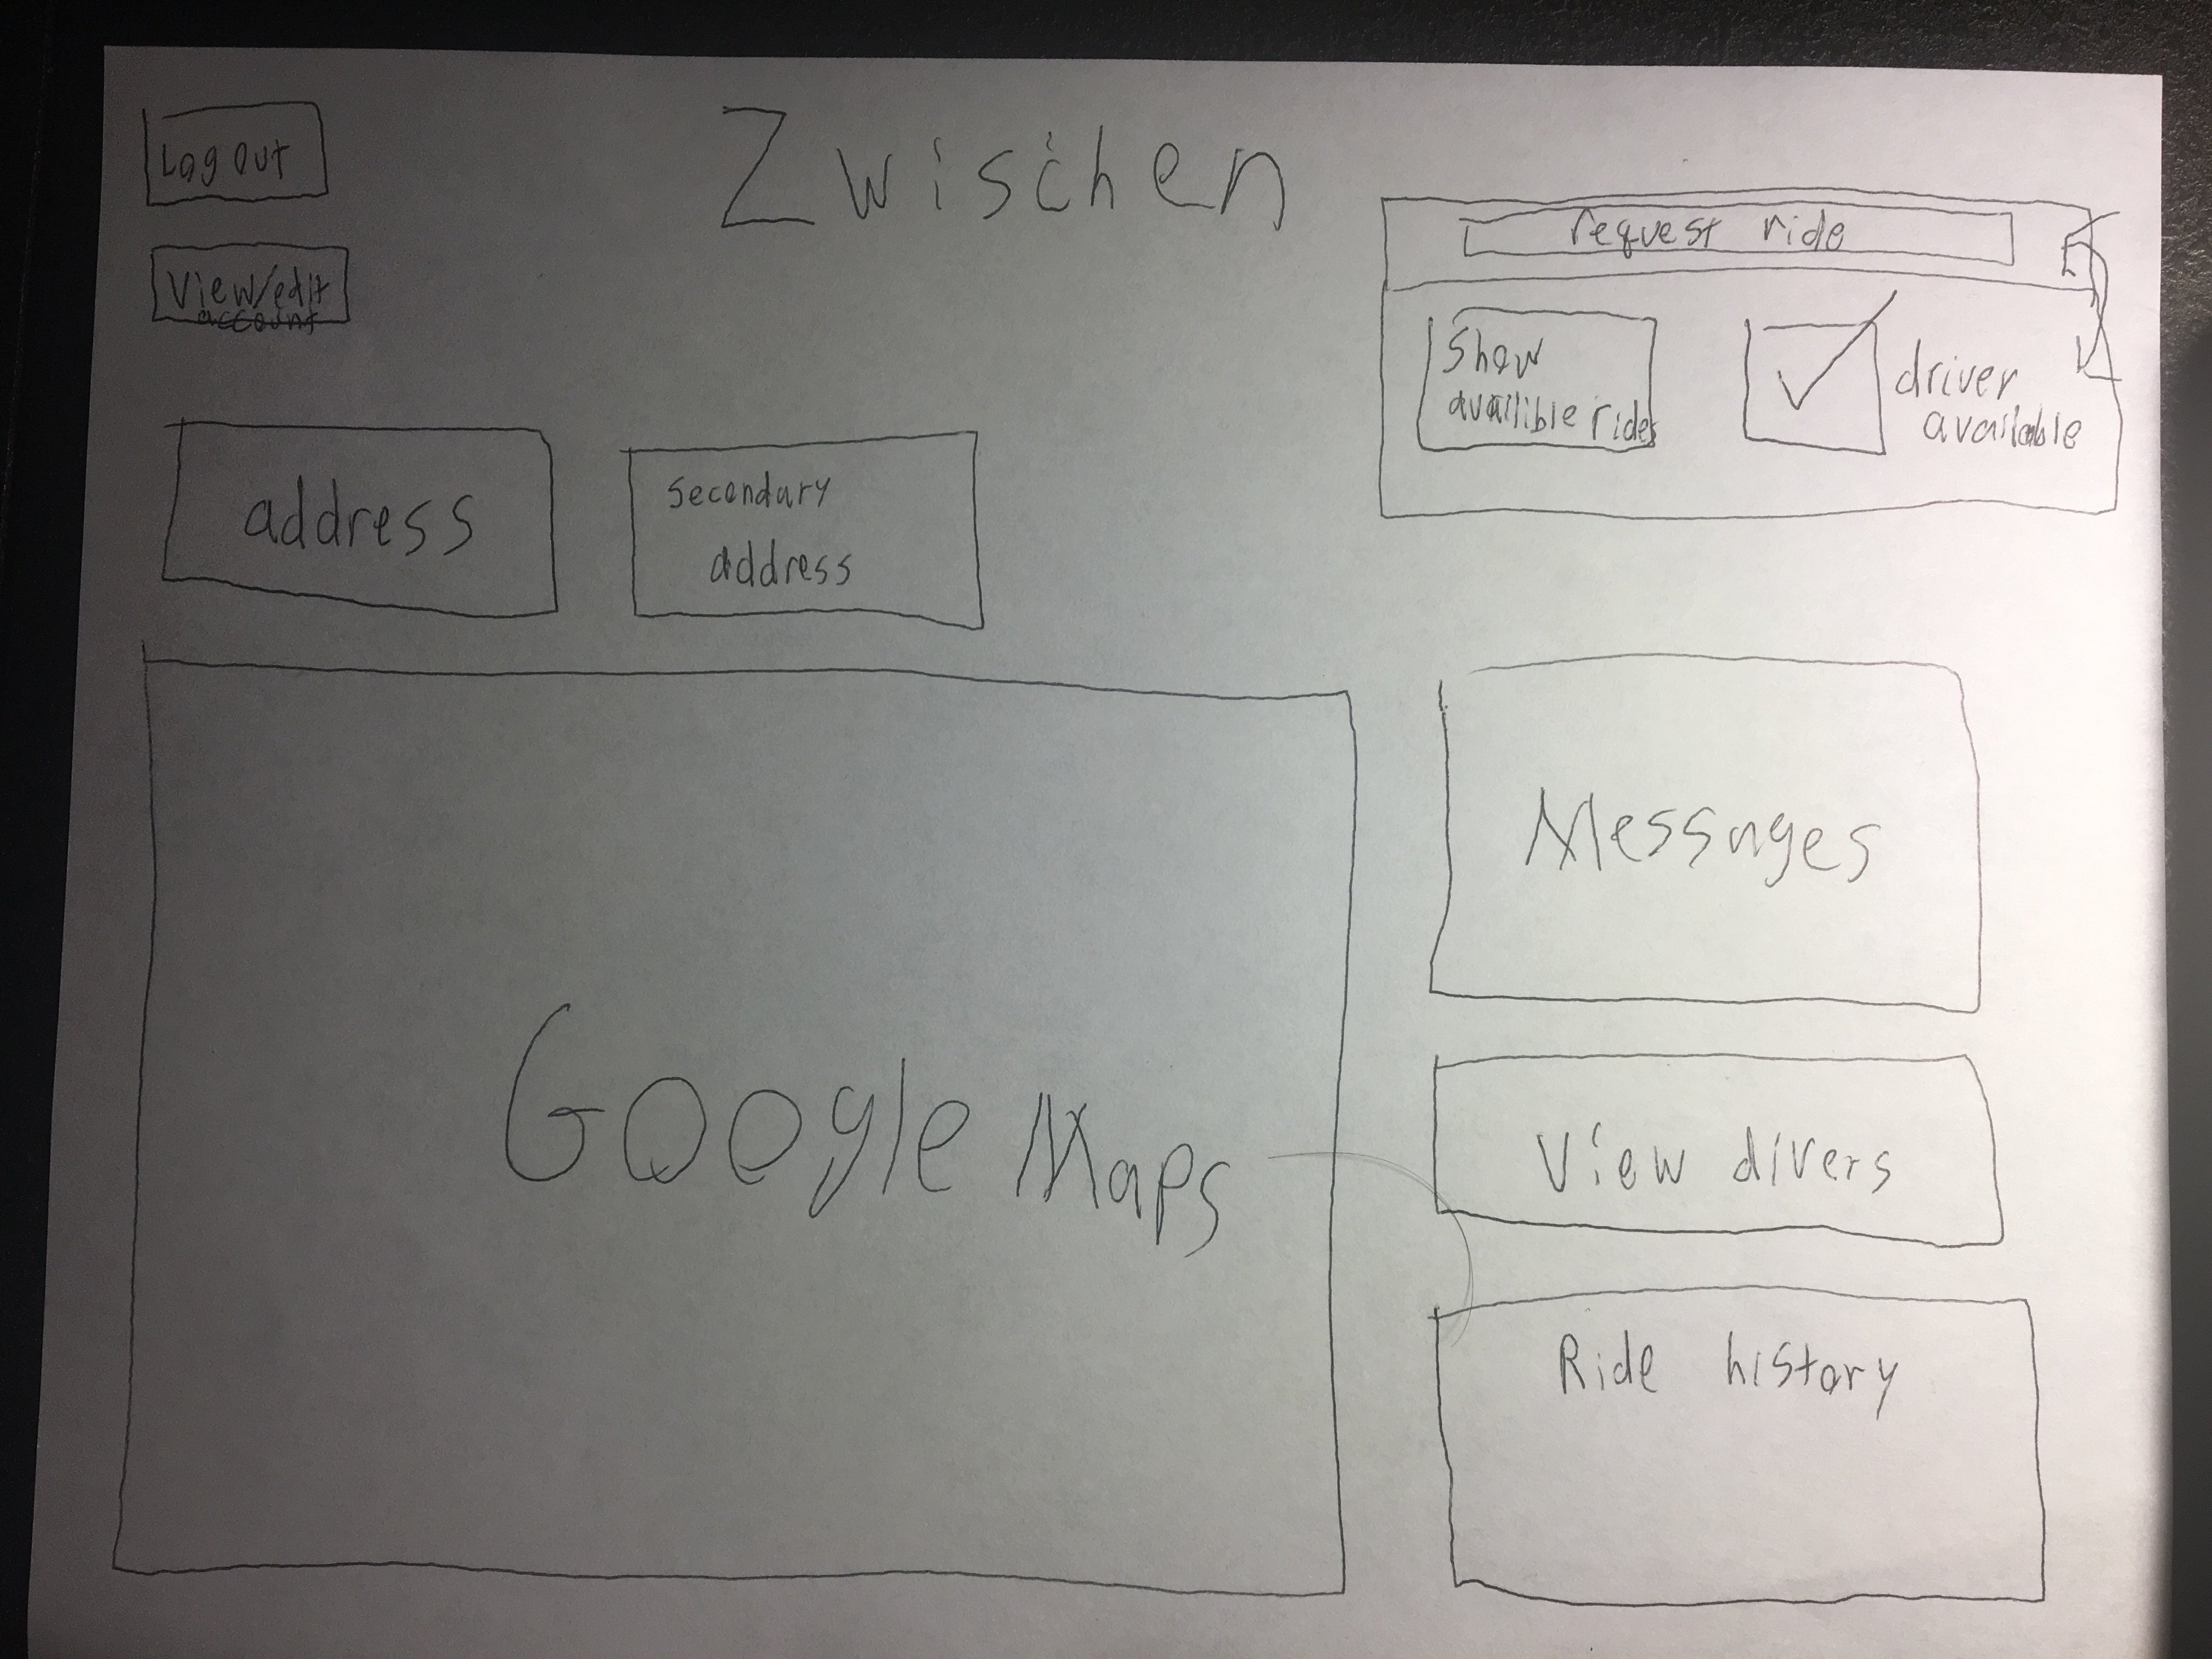 Log out
Zwischen
View/edit
account
request ride
Show
availible rides
driver
available
address
Secondary
address
Messages
Google Maps
View divers
Ride history